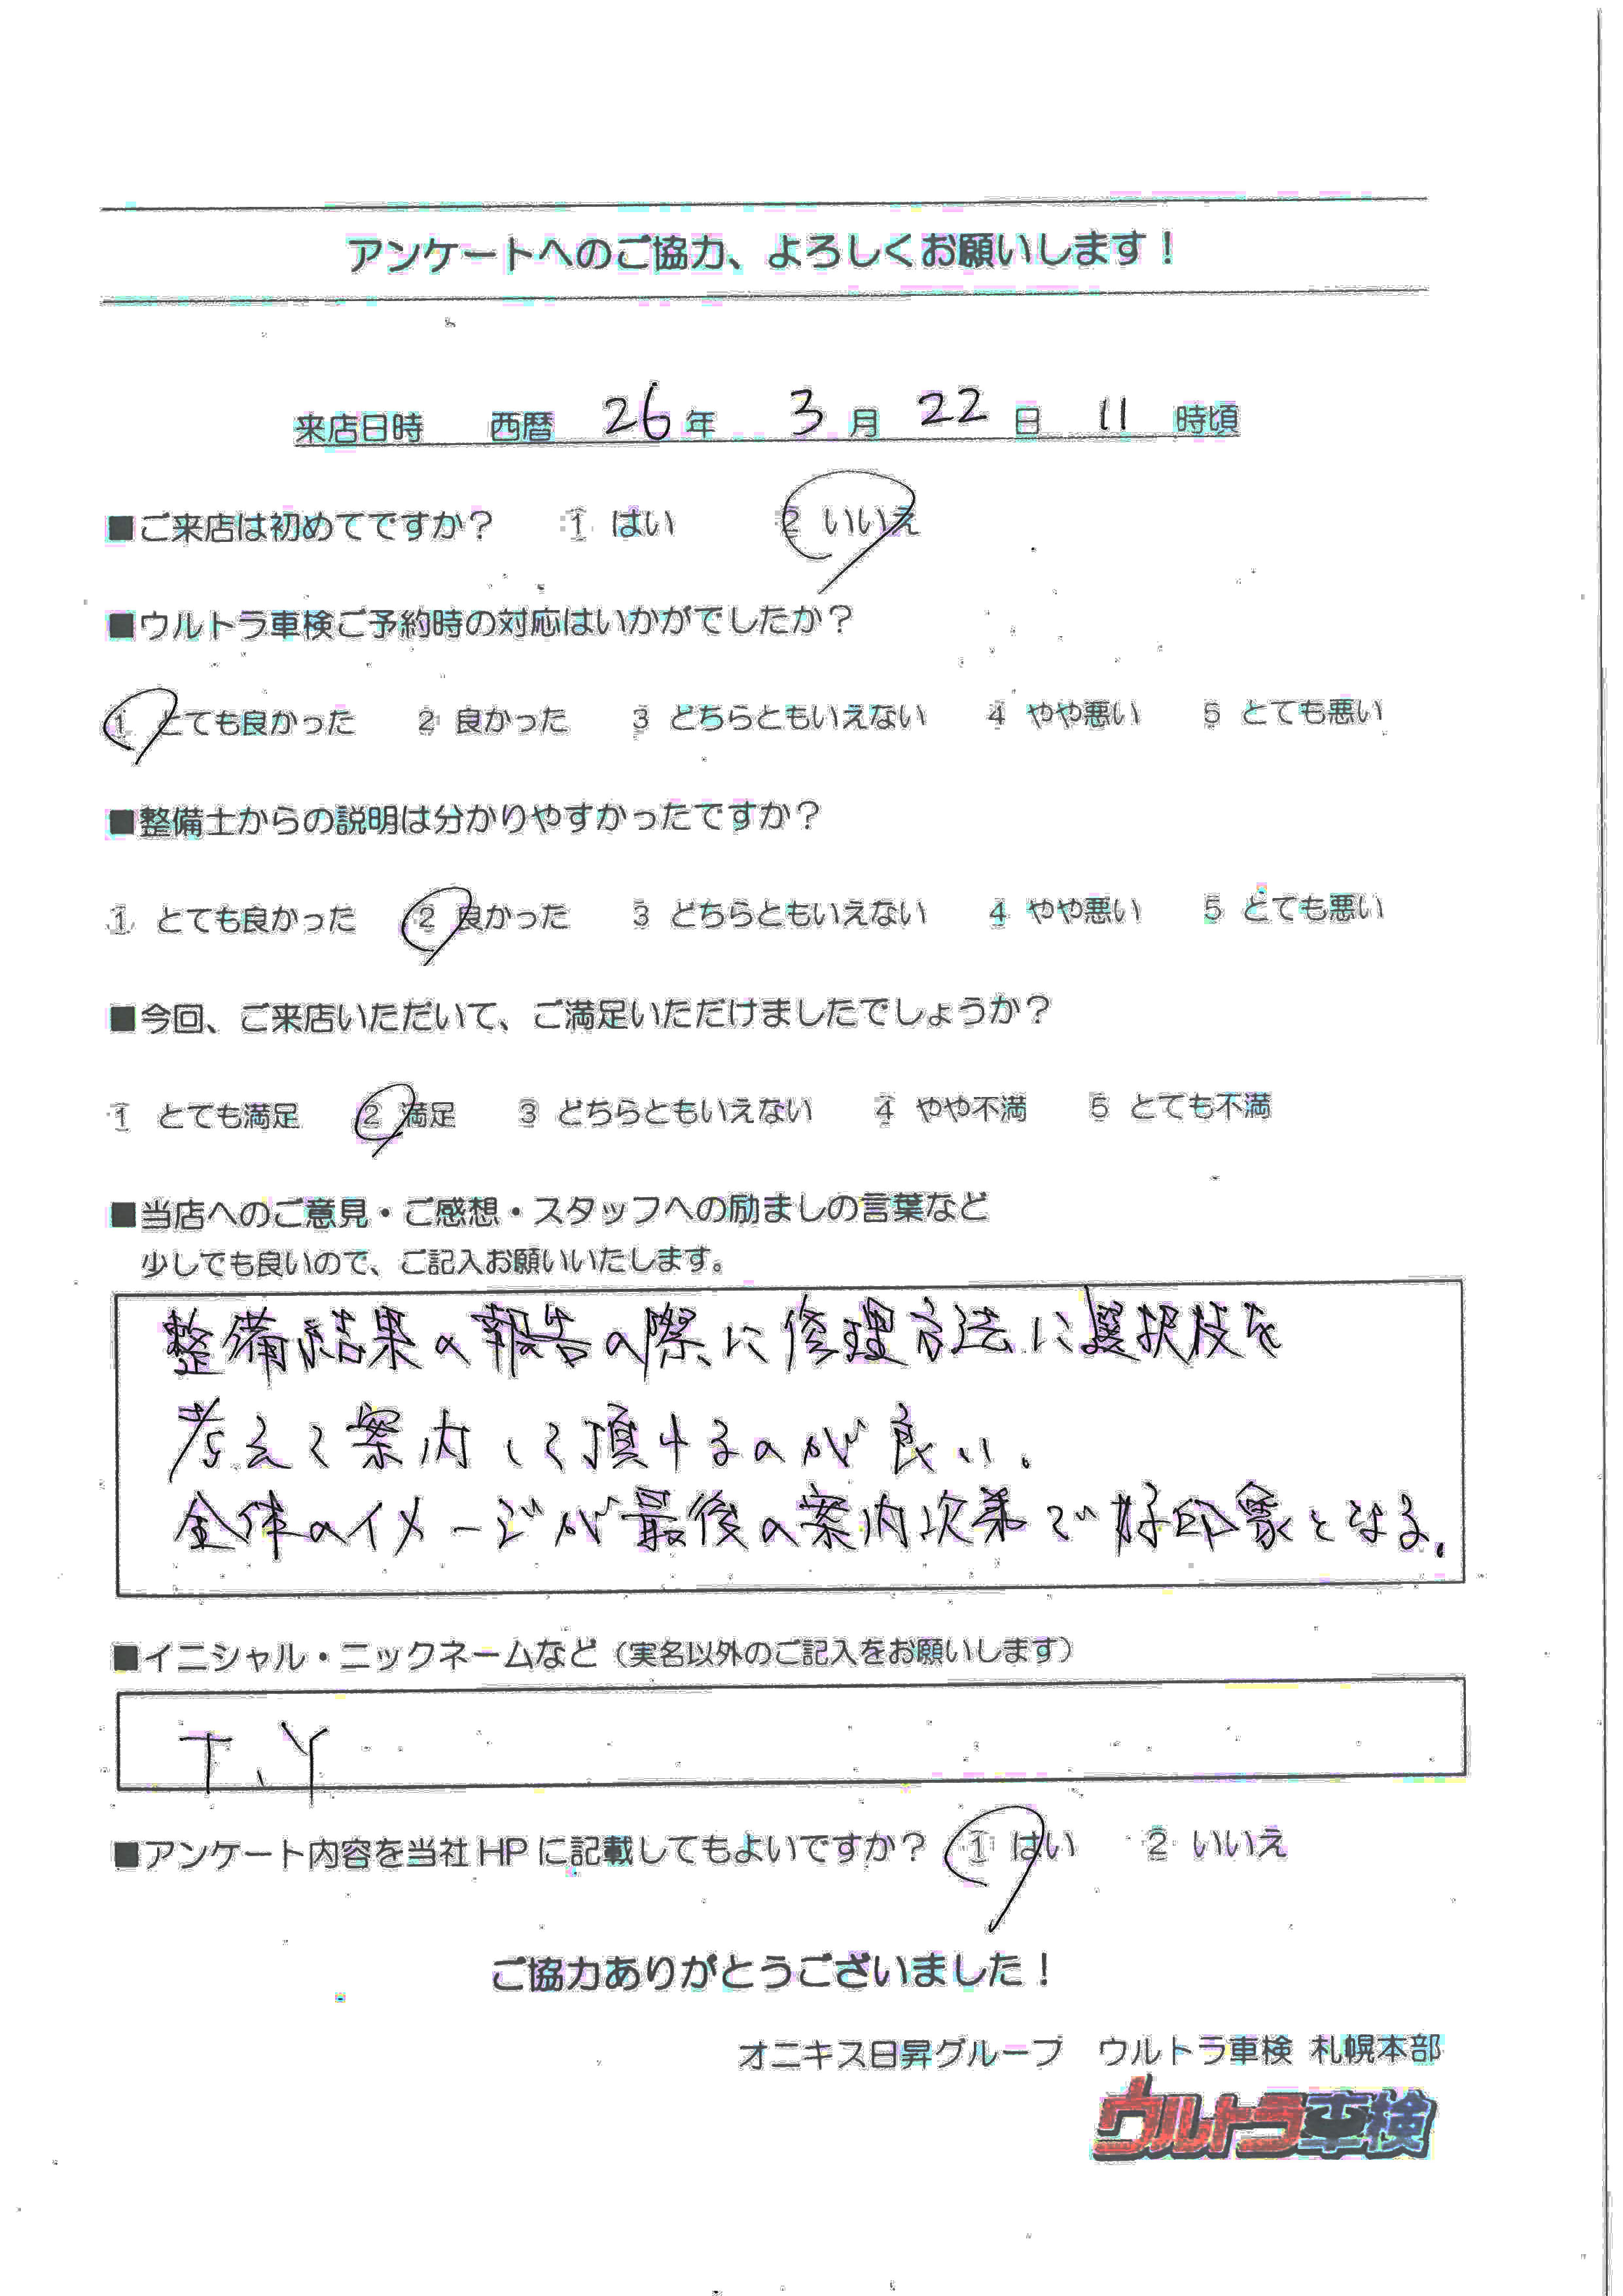 アンケートへのご協力、よろしくお願いします！
来店日時 西暦 26年 3月 22日 11時頃
■ご来店は初めてですか？ 1 はい 2 いいえ
■ウルトラ車検ご予約時の対応はいかがでしたか？
1 とても良かった 2 良かった 3 どちらともいえない 4 やや悪い 5 とても悪い
■整備士からの説明は分かりやすかったですか？
1 とても良かった 2 良かった 3 どちらともいえない 4 やや悪い 5 とても悪い
■今回、ご来店いただいて、ご満足いただけましたでしょうか？
1 とても満足 2 満足 3 どちらともいえない 4 やや不満 5 とても不満
■当店へのご意見・ご感想・スタッフへの励ましの言葉など
少しでも良いので、ご記入お願いいたします。
整備結果の報告の際に修理方法に選択技を
考えて案内して頂けるのが良い。
全体のイメージが最後の案内次第で好印象となる。
■イニシャル・ニックネームなど（実名以外のご記入をお願いします）
T.Y
■アンケート内容を当社HPに記載してもよいですか？ 1 はい 2 いいえ
ご協力ありがとうございました！
オニキス日昇グループ ウルトラ車検 札幌本部
ウルトラ車検